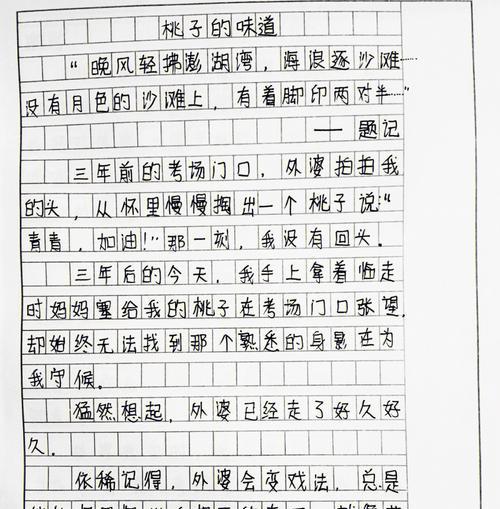 桃子的味道
“晚风轻拂澎湖湾，海浪逐沙滩……
没有月色的沙滩上，有着脚印两对半……”
——题记
三年前的考场门口，外婆拍拍我
的头，从怀里慢慢掏出一个桃子说：“
青青，加油！”那一刻，我没有回头。
三年后的今天，我手上拿着临走
时妈妈塞给我的桃子在考场门口张望，
却始终无法找到那个熟悉的身影在为
我守候。
猛然想起，外婆已经走了好久好
久。
依稀记得，外婆会变戏法，总是